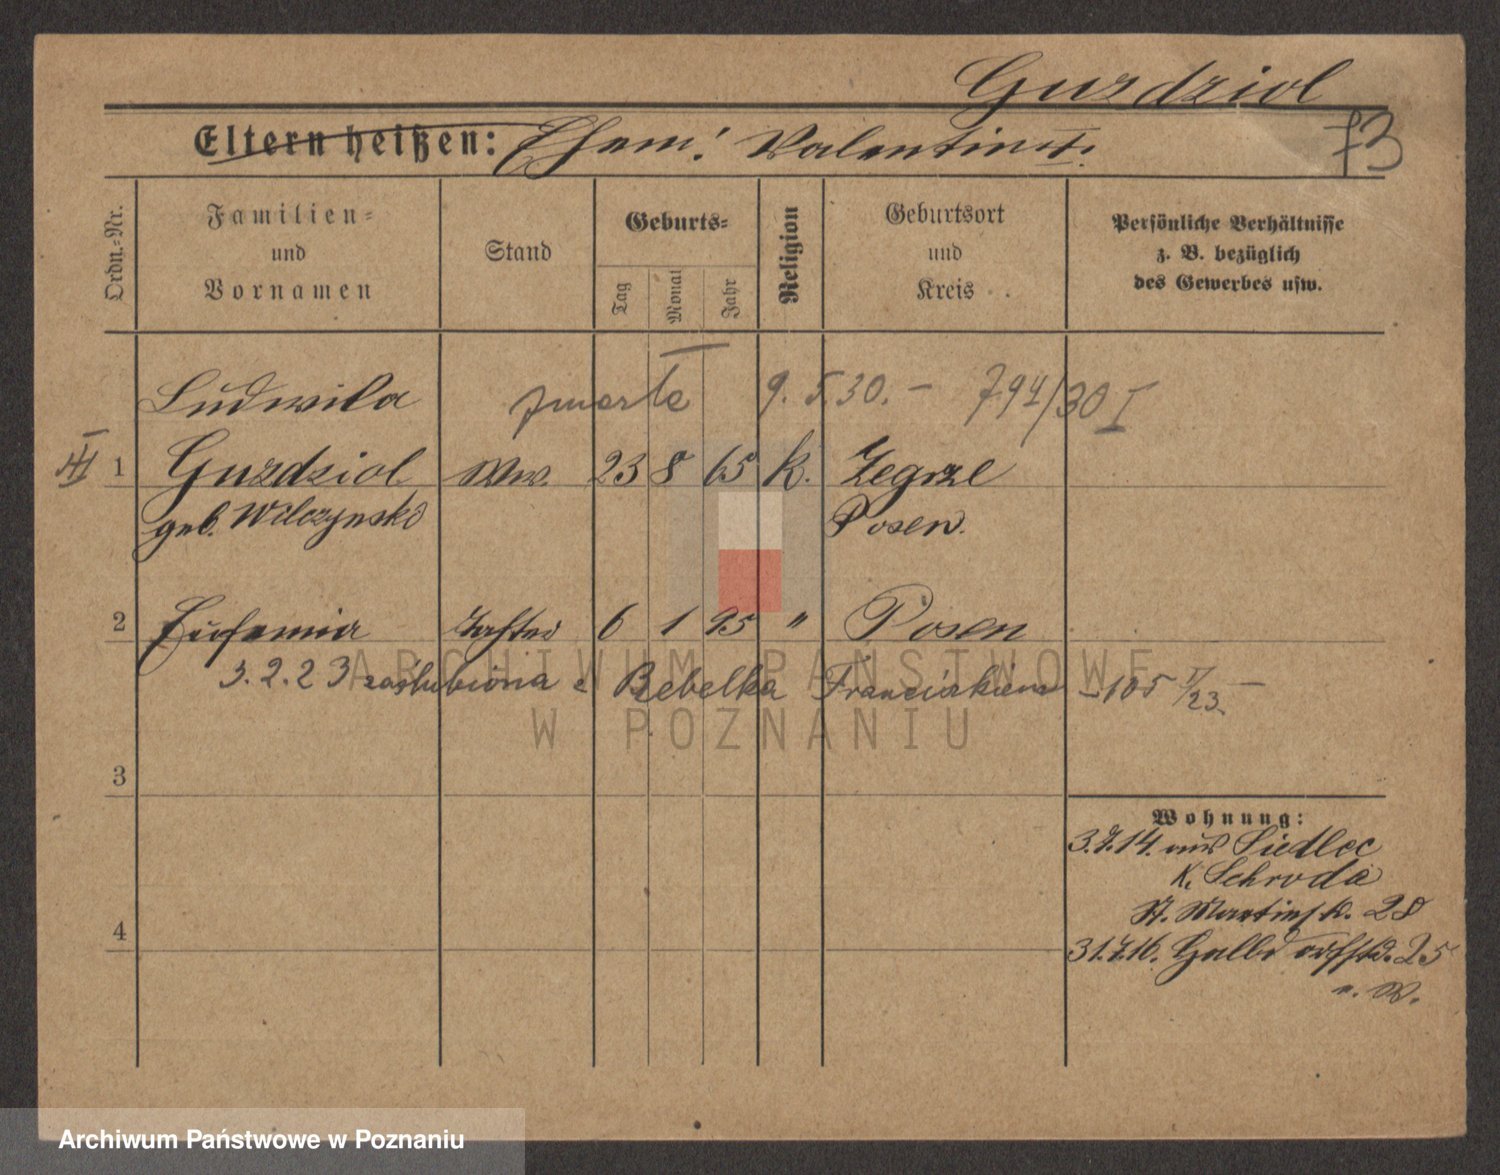 Guzdziol
73
Eltern heißen: Ehem. Valentin †.
Ordn.-Nr.
Familien-
und
Vornamen
Stand
Geburts-
Tag
Monat
Jahr
Religion
Geburtsort
und
Kreis
Persönliche Verhältnisse
z. B. bezüglich
des Gewerbes usw.
Ludwika zmarła 9.5.30. – 794/30 I
III 1 Guzdziol Ww. 23 8 65 k. Zegrze
geb. Wilczynska Posen.
2 Eufemia Tochter 6 1 95 " Posen
3.2.23 zaślubiona z Bebelka Franciszkiem – 105 I/23 –
ARCHIWUM PAŃSTWOWE
W POZNANIU
3
Wohnung:
3.7.14. aus Siedlec
K. Schroda
4
St. Martinstr. 28
31.7.16. Halbdorfstr. 25
b. W.
Archiwum Państwowe w Poznaniu